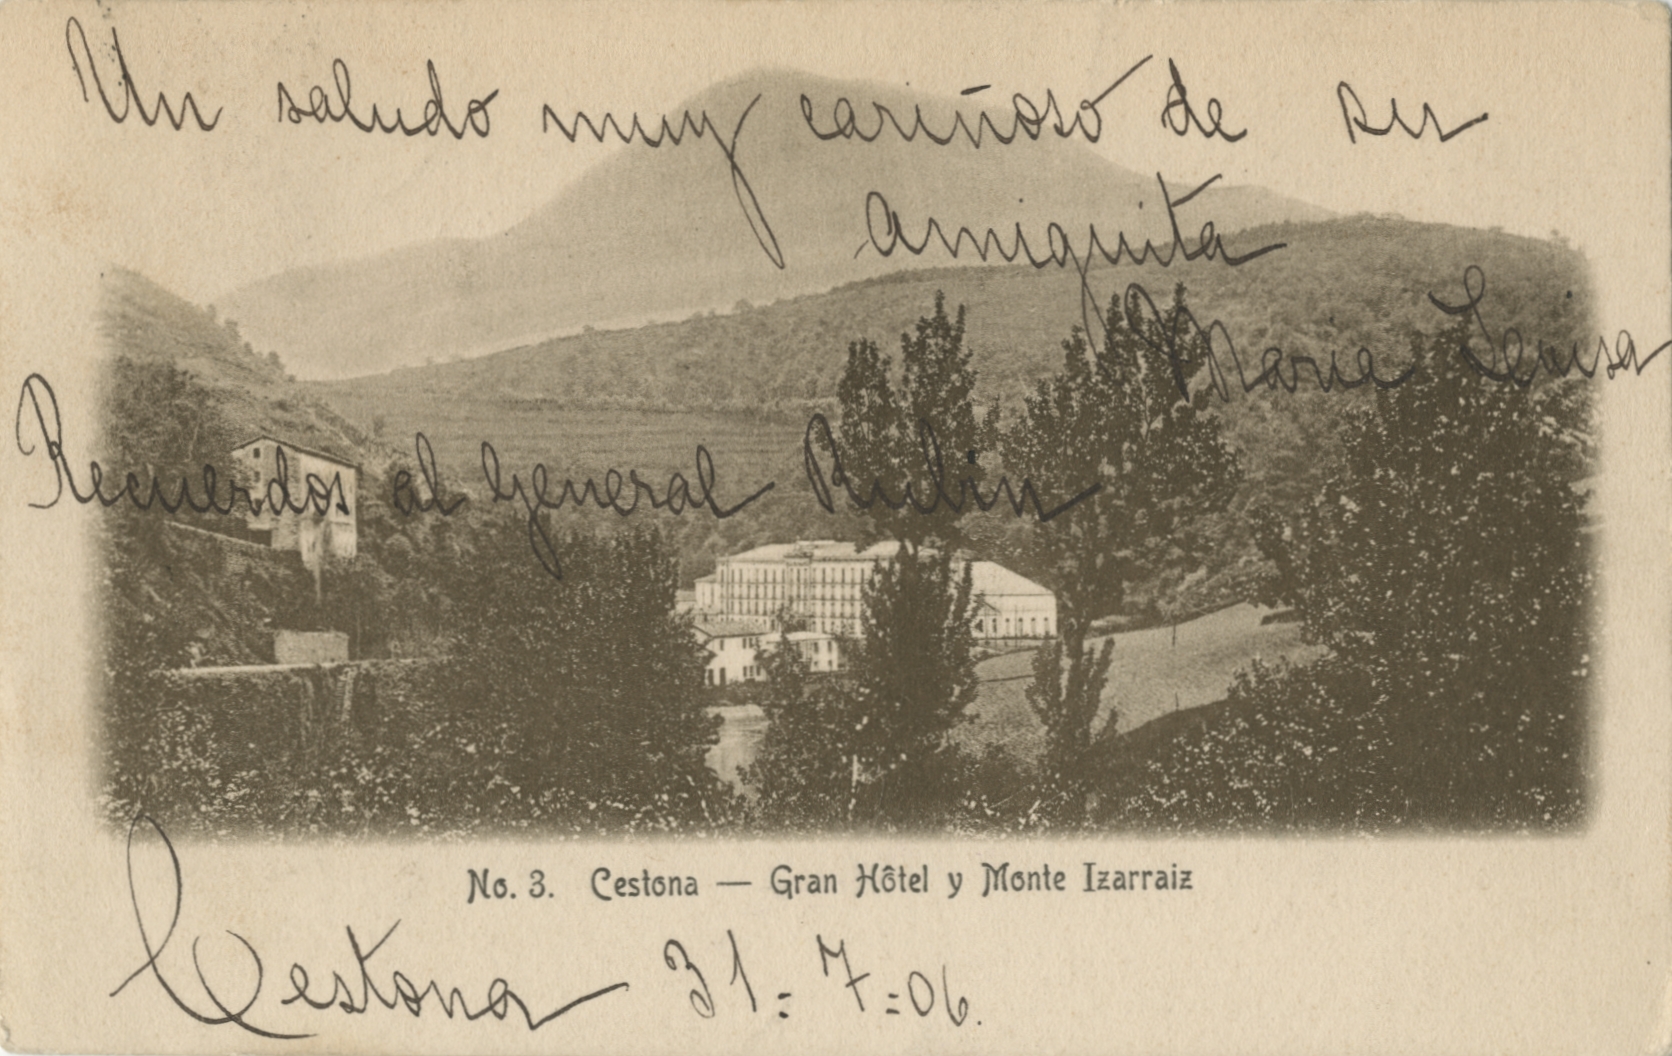 Un saludo muy cariñoso de su
amiguita
Maria Luisa
Recuerdos al General Rubin
No. 3. Cestona — Gran Hôtel y Monte Izarraiz
Cestona 31=7=06.